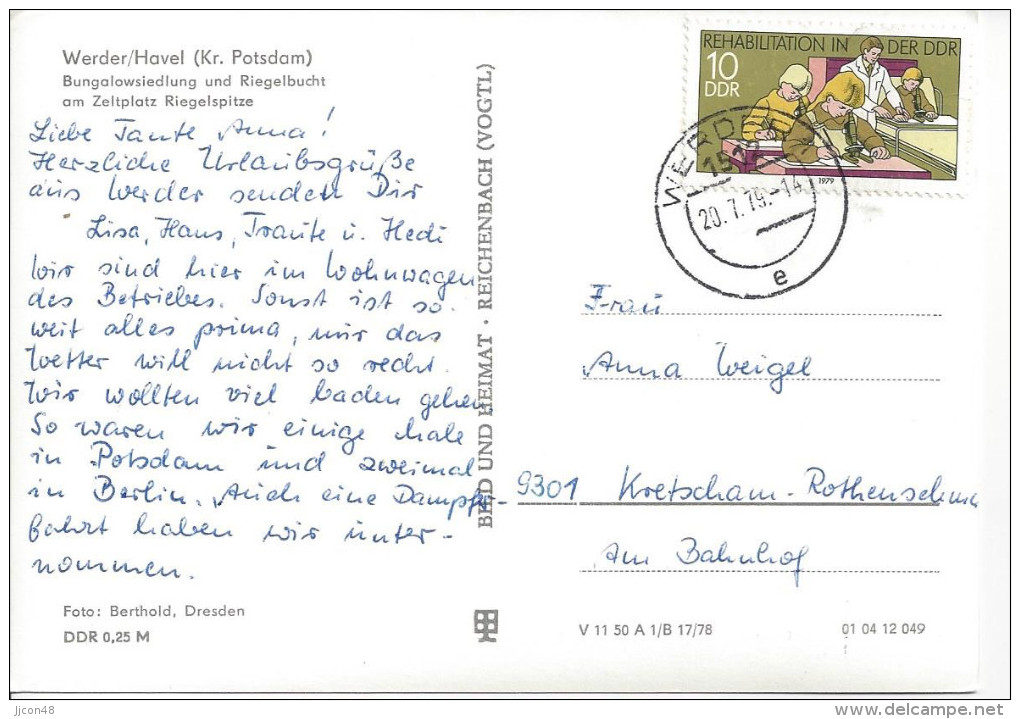 Werder/Havel (Kr. Potsdam)
Bungalowsiedlung und Riegelbucht
am Zeltplatz Riegelspitze
Liebe Tante Anna!
Herzliche Urlaubsgrüße
aus Werder senden Dir
Lisa, Hans, Traute u. Hedi
Wir sind hier im Wohnwagen
des Betriebes. Sonst ist so
weit alles prima, nur das
Wetter will nicht so recht.
Wir wollten viel baden gehen.
So waren wir einige male
in Potsdam und zweimal
in Berlin. Auch eine Dampfer-
fahrt haben wir unter-
nommen.
Foto: Berthold, Dresden
DDR 0,25 M
BILD UND HEIMAT · REICHENBACH (VOGTL)
REHABILITATION IN DER DDR
10
DDR
1979
WERDER
1512
20.7.79.-14
e
Frau
Anna Weigel
9301 Kretscham-Rothensehma
Am Bahnhof
V 11 50 A 1/B 17/78
01 04 12 049
jjcon48
www.delcampe.net